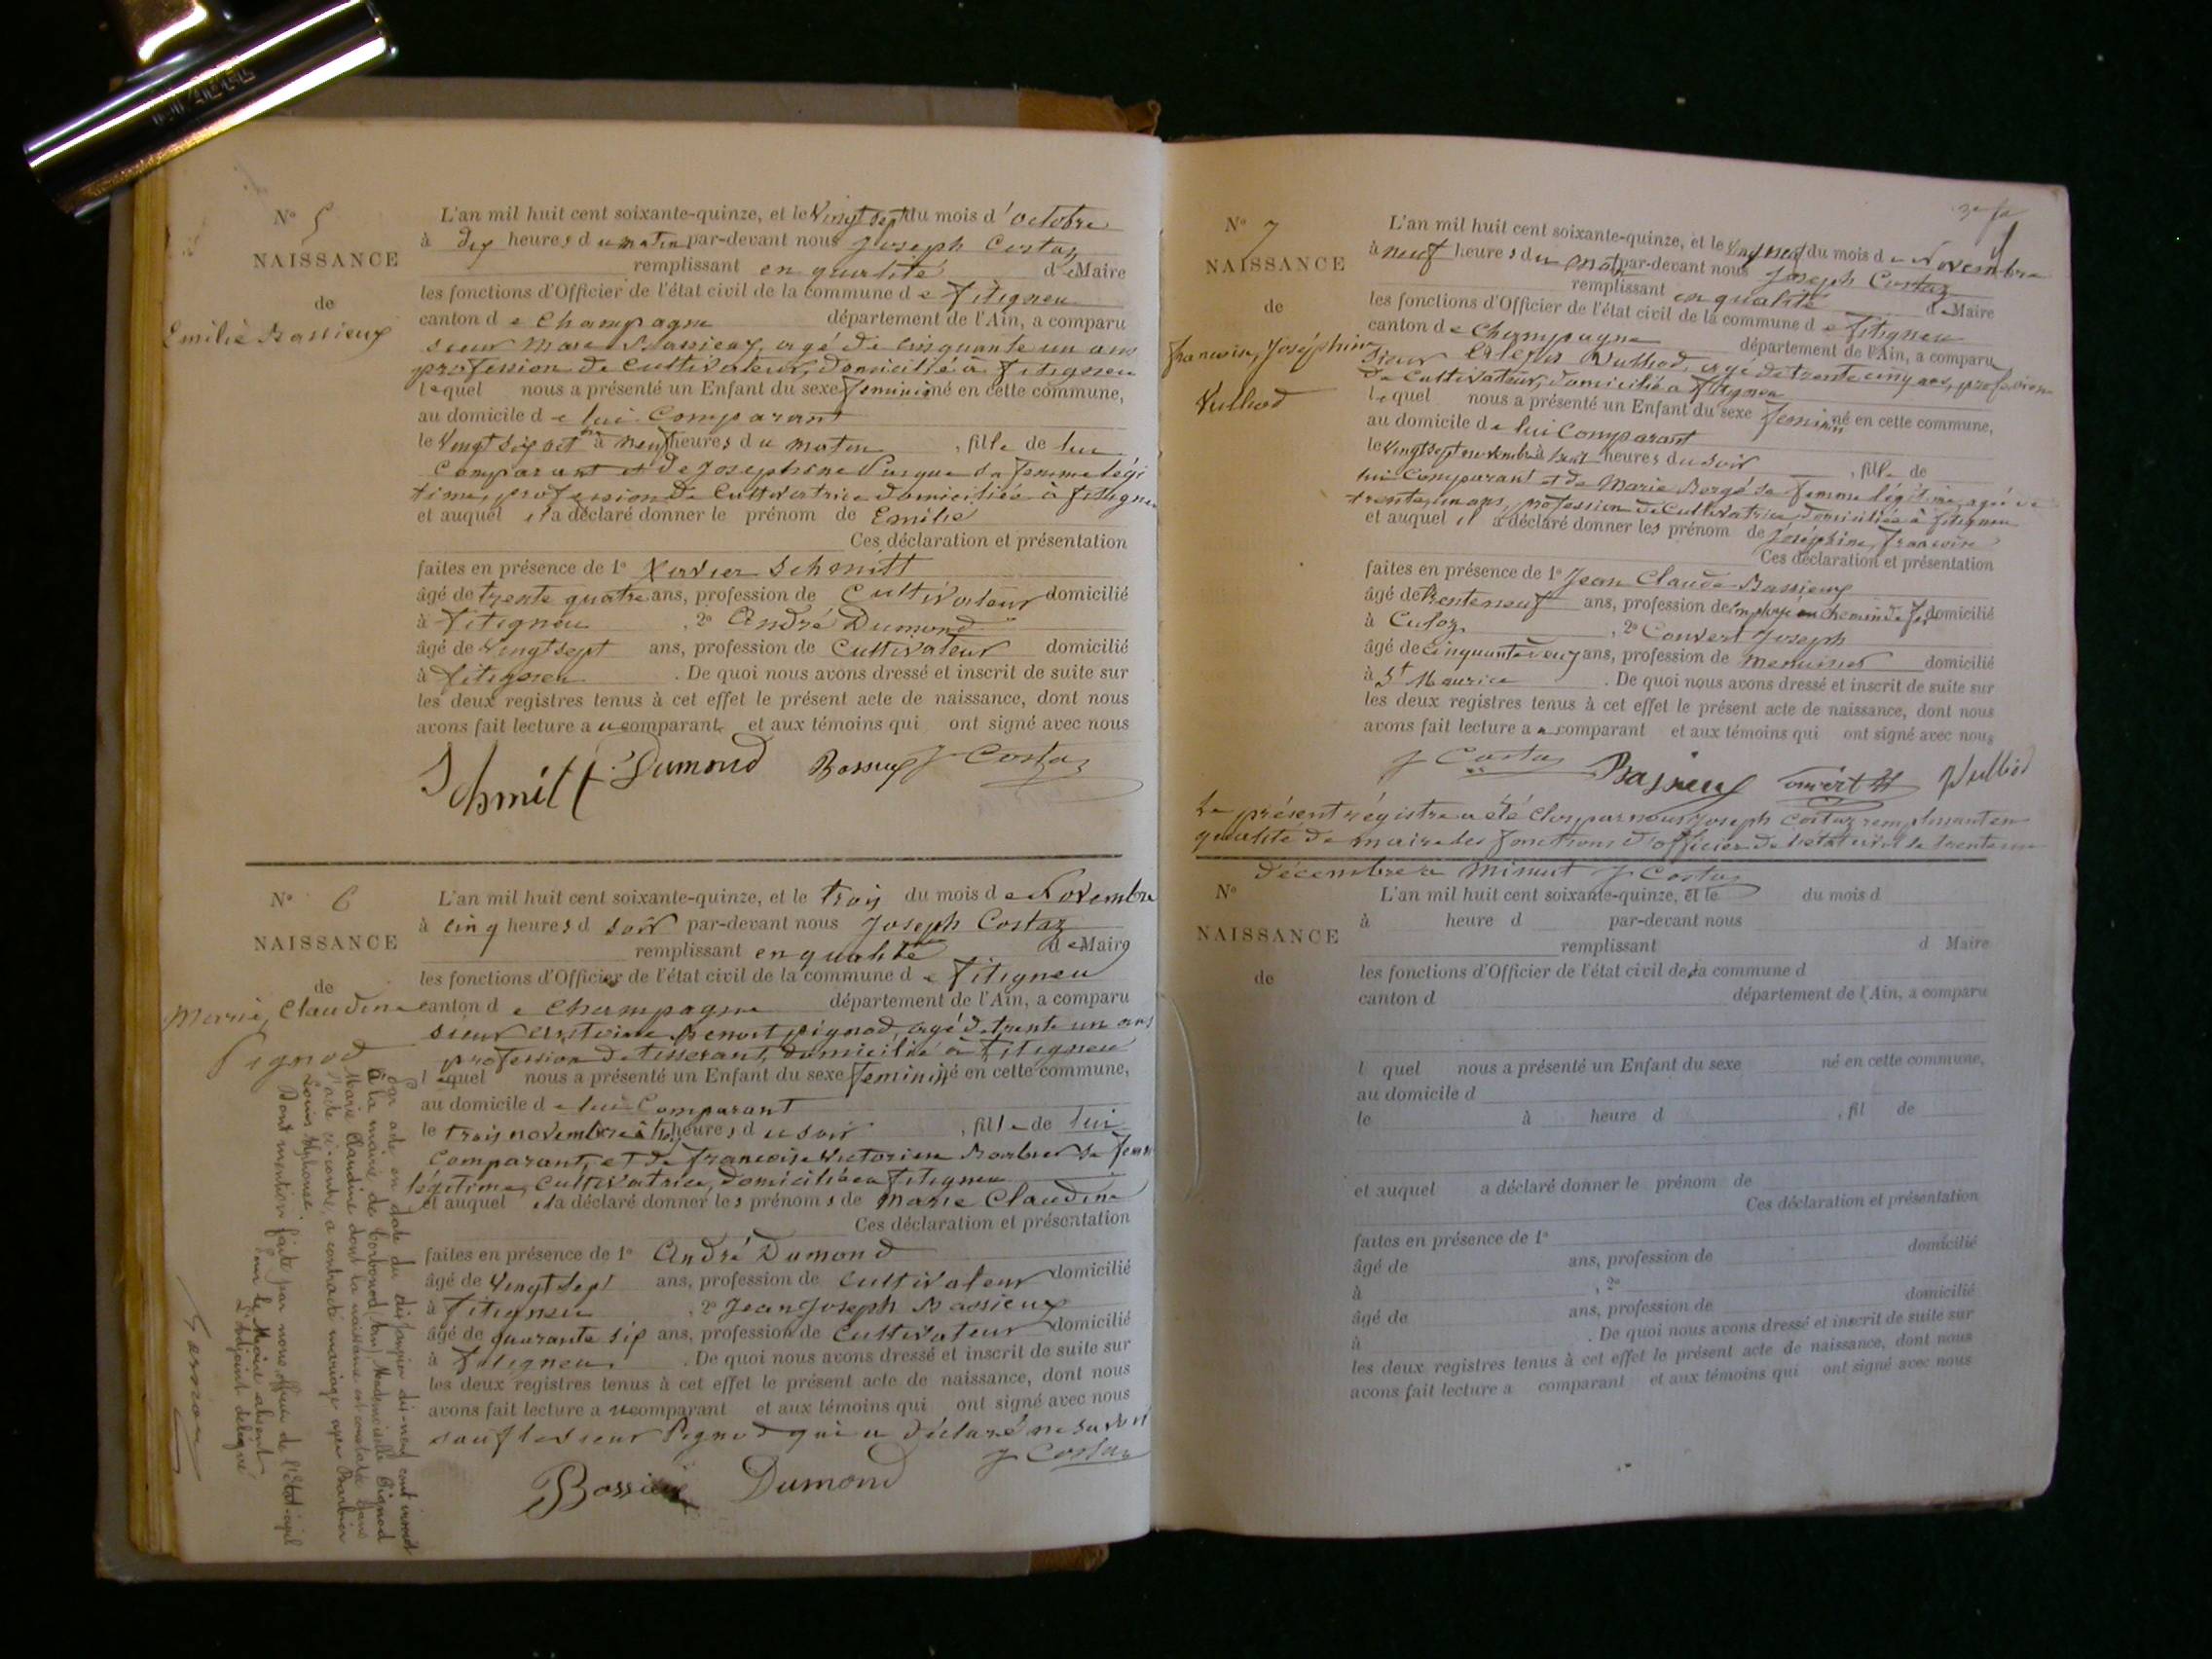 N° 5
NAISSANCE
de
Emilie Bassieux
L'an mil huit cent soixante-quinze, et le Vingt sept du mois d'octobre
à dix heures du matin par-devant nous Joseph Costaz
remplissant en qualité de Maire
les fonctions d'Officier de l'état civil de la commune de fitigneu
canton de Champagne département de l'Ain, a comparu
sieur Marc Bassieux, agé de cinquante un ans
profession de Cultivateur, domicilié à fitigneu
lequel nous a présenté un Enfant du sexe feminin né en cette commune,
au domicile de lui Comparant
le Vingt six oct à neuf heures du matin, fille de lui
Comparant et de Josephine sa femme légi
time, profession de Cultivatrice domiciliée à fitigneu
et auquel il a déclaré donner le prénom de Emilie
Ces déclaration et présentation
faites en présence de 1° Xavier Schmitt
âgé de trente quatre ans, profession de Cultivateur domicilié
à fitigneu, 2° André Dumond
âgé de Vingt sept ans, profession de Cultivateur domicilié
à fitigneu. De quoi nous avons dressé et inscrit de suite sur
les deux registres tenus à cet effet le présent acte de naissance, dont nous
avons fait lecture au comparant et aux témoins qui ont signé avec nous
Schmitt Dumond Bassieux J Costaz
N° 6
NAISSANCE
de
Marie, Claudine
Pignod
L'an mil huit cent soixante-quinze, et le trois du mois de Novembre
à cinq heures d soir par-devant nous Joseph Costaz
remplissant en qualité de Maire
les fonctions d'Officier de l'état civil de la commune de fitigneu
canton de Champagne département de l'Ain, a comparu
sieur Antoine Benoit pignod, agé de trente un ans
profession de tisserant, domicilié à fitigneu
lequel nous a présenté un Enfant du sexe feminin né en cette commune,
au domicile de lui Comparant
le trois novembre à heures du soir, fille de lui
Comparant, et de francoise Victorine Barbier sa fem
légitime, Cultivatrice, domiciliée a fitigneu
et auquel il a déclaré donner les prénoms de Marie Claudine
Ces déclaration et présentation
faites en présence de 1° André Dumond
âgé de Vingt sept ans, profession de Cultivateur domicilié
à fitigneu, 2° Jean Joseph Bassieux
âgé de quarante six ans, profession de Cultivateur domicilié
à fitigneu. De quoi nous avons dressé et inscrit de suite sur
les deux registres tenus à cet effet le présent acte de naissance, dont nous
avons fait lecture au comparant et aux témoins qui ont signé avec nous
sauf le sieur Pignod qui a déclaré ne savoir
J Costaz
Bassieux Dumond
Par acte en date du dix janvier dix-neuf cent
à la mairie de Corbonod (Ain) Mademoiselle Pignod
Marie Claudine dont la naissance est constatée dans
l'acte ci-contre, a contracté mariage avec Barbier
Louis Alphonse.
Dont mention faite par nous officier de l'Etat-civil
Pour le Maire absent
L'adjoint délégué
N° 7
NAISSANCE
de
francoise, Joséphine
Vulliod
L'an mil huit cent soixante-quinze, et le Vingt neuf du mois de Novembre
à neuf heures du matin par-devant nous Joseph Costaz
remplissant en qualité de Maire
les fonctions d'Officier de l'état civil de la commune de fitigneu
canton de Champagne département de l'Ain, a comparu
Sieur Vulliod, agé de trente cinq ans, profession
de Cultivateur, domicilié a fitigneu
lequel nous a présenté un Enfant du sexe feminin né en cette commune,
au domicile de lui Comparant
le Vingt sept novembre à heures du soir, fille de
lui Comparant et de Marie Bergé sa femme légitime, agée de
trente un ans, profession de Cultivatrice, domiciliée à fitigneu
et auquel il a déclaré donner les prénom de Joséphine, francoise
Ces déclaration et présentation
faites en présence de 1° Jean Claude Bassieux
âgé de trente neuf ans, profession de employé au chemin de fer domicilié
à Culoz, 2° Convert Joseph
âgé de cinquante deux ans, profession de menuisier domicilié
à St Maurice. De quoi nous avons dressé et inscrit de suite sur
les deux registres tenus à cet effet le présent acte de naissance, dont nous
avons fait lecture au comparant et aux témoins qui ont signé avec nous
J Costaz Bassieux Convert Vulliod
Le présent régistre a été clos par nous Joseph Costaz remplissant en
qualité de maire les fonctions d'officier de l'état civil le trente un
décembre a minuit J Costaz
N°
NAISSANCE
de
L'an mil huit cent soixante-quinze, et le du mois d
à heure d par-devant nous
remplissant d Maire
les fonctions d'Officier de l'état civil de la commune d
canton d département de l'Ain, a comparu
l quel nous a présenté un Enfant du sexe né en cette commune,
au domicile d
le à heure d, fil de
et auquel a déclaré donner le prénom de
Ces déclaration et présentation
faites en présence de 1°
âgé de ans, profession de domicilié
à, 2°
âgé de ans, profession de domicilié
à. De quoi nous avons dressé et inscrit de suite sur
les deux registres tenus à cet effet le présent acte de naissance, dont nous
avons fait lecture a comparant et aux témoins qui ont signé avec nous